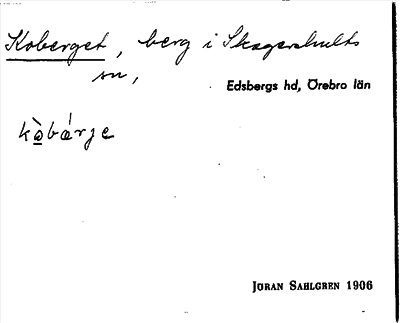 Koberget, berg i Skagershults
sn,
Edsbergs hd, Örebro län
kò̱bǽrje
JÖRAN SAHLGREN 1906